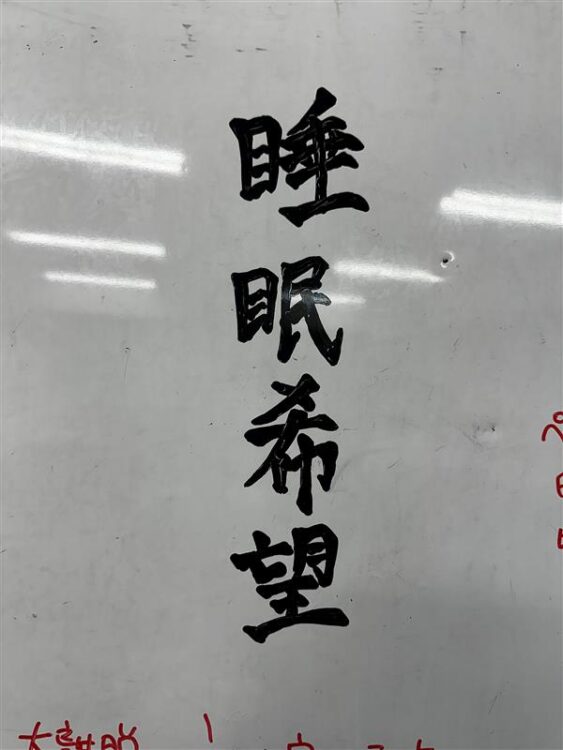 睡眠希望